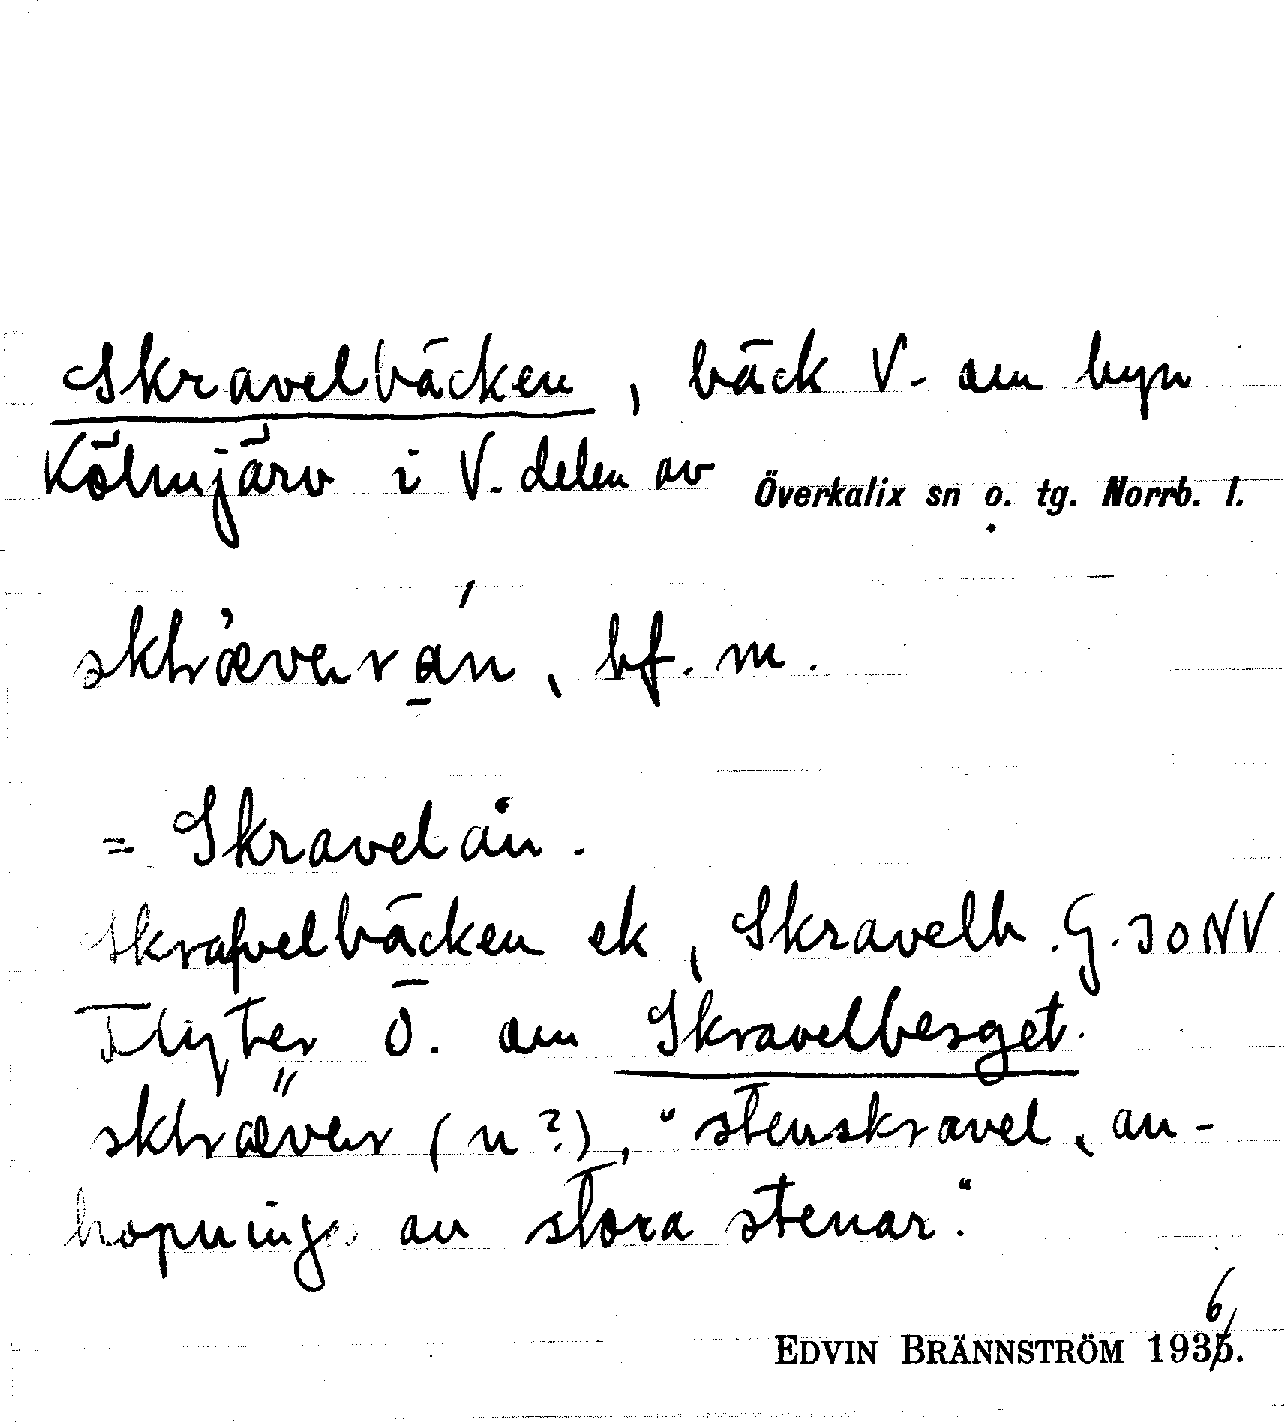 Skravelbäcken, bäck V. om byn
Kölmjärv i V. delen av Överkalix sn o. tg. Norrb. l.
bf. m.
= Skravelån.
Skrafvelbäcken ek, Skravelb. G. 30 NV
Flyter Ö. om Skravelberget.
(n?), "stenskravel, an-
hopning av stora stenar."
EDVIN BRÄNNSTRÖM 1936.